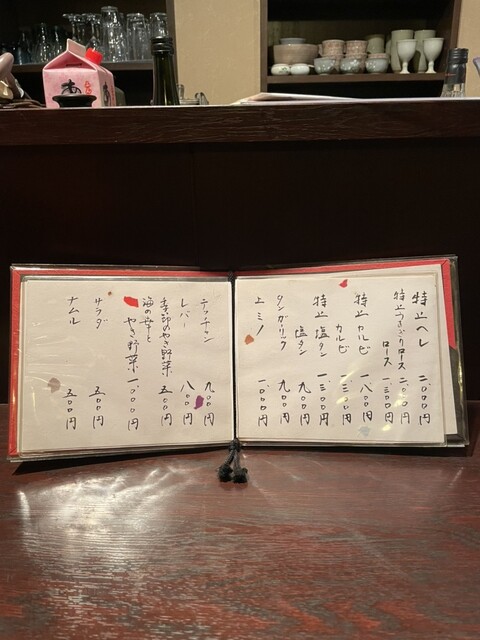 特上ヘレ 二、〇〇〇円
特上うすぎりロース 二、〇〇〇円
ロース 一、三〇〇円
特上カルビ 一、八〇〇円
カルビ 一、三〇〇円
特上塩タン 一、三〇〇円
塩タン 九〇〇円
タンガーリック 九〇〇円
上ミノ 一、〇〇〇円
テッチャン 九〇〇円
レバー 八〇〇円
季節のやき野菜 五〇〇円
海の幸とやき野菜 一、〇〇〇円
サラダ 五〇〇円
ナムル 五〇〇円